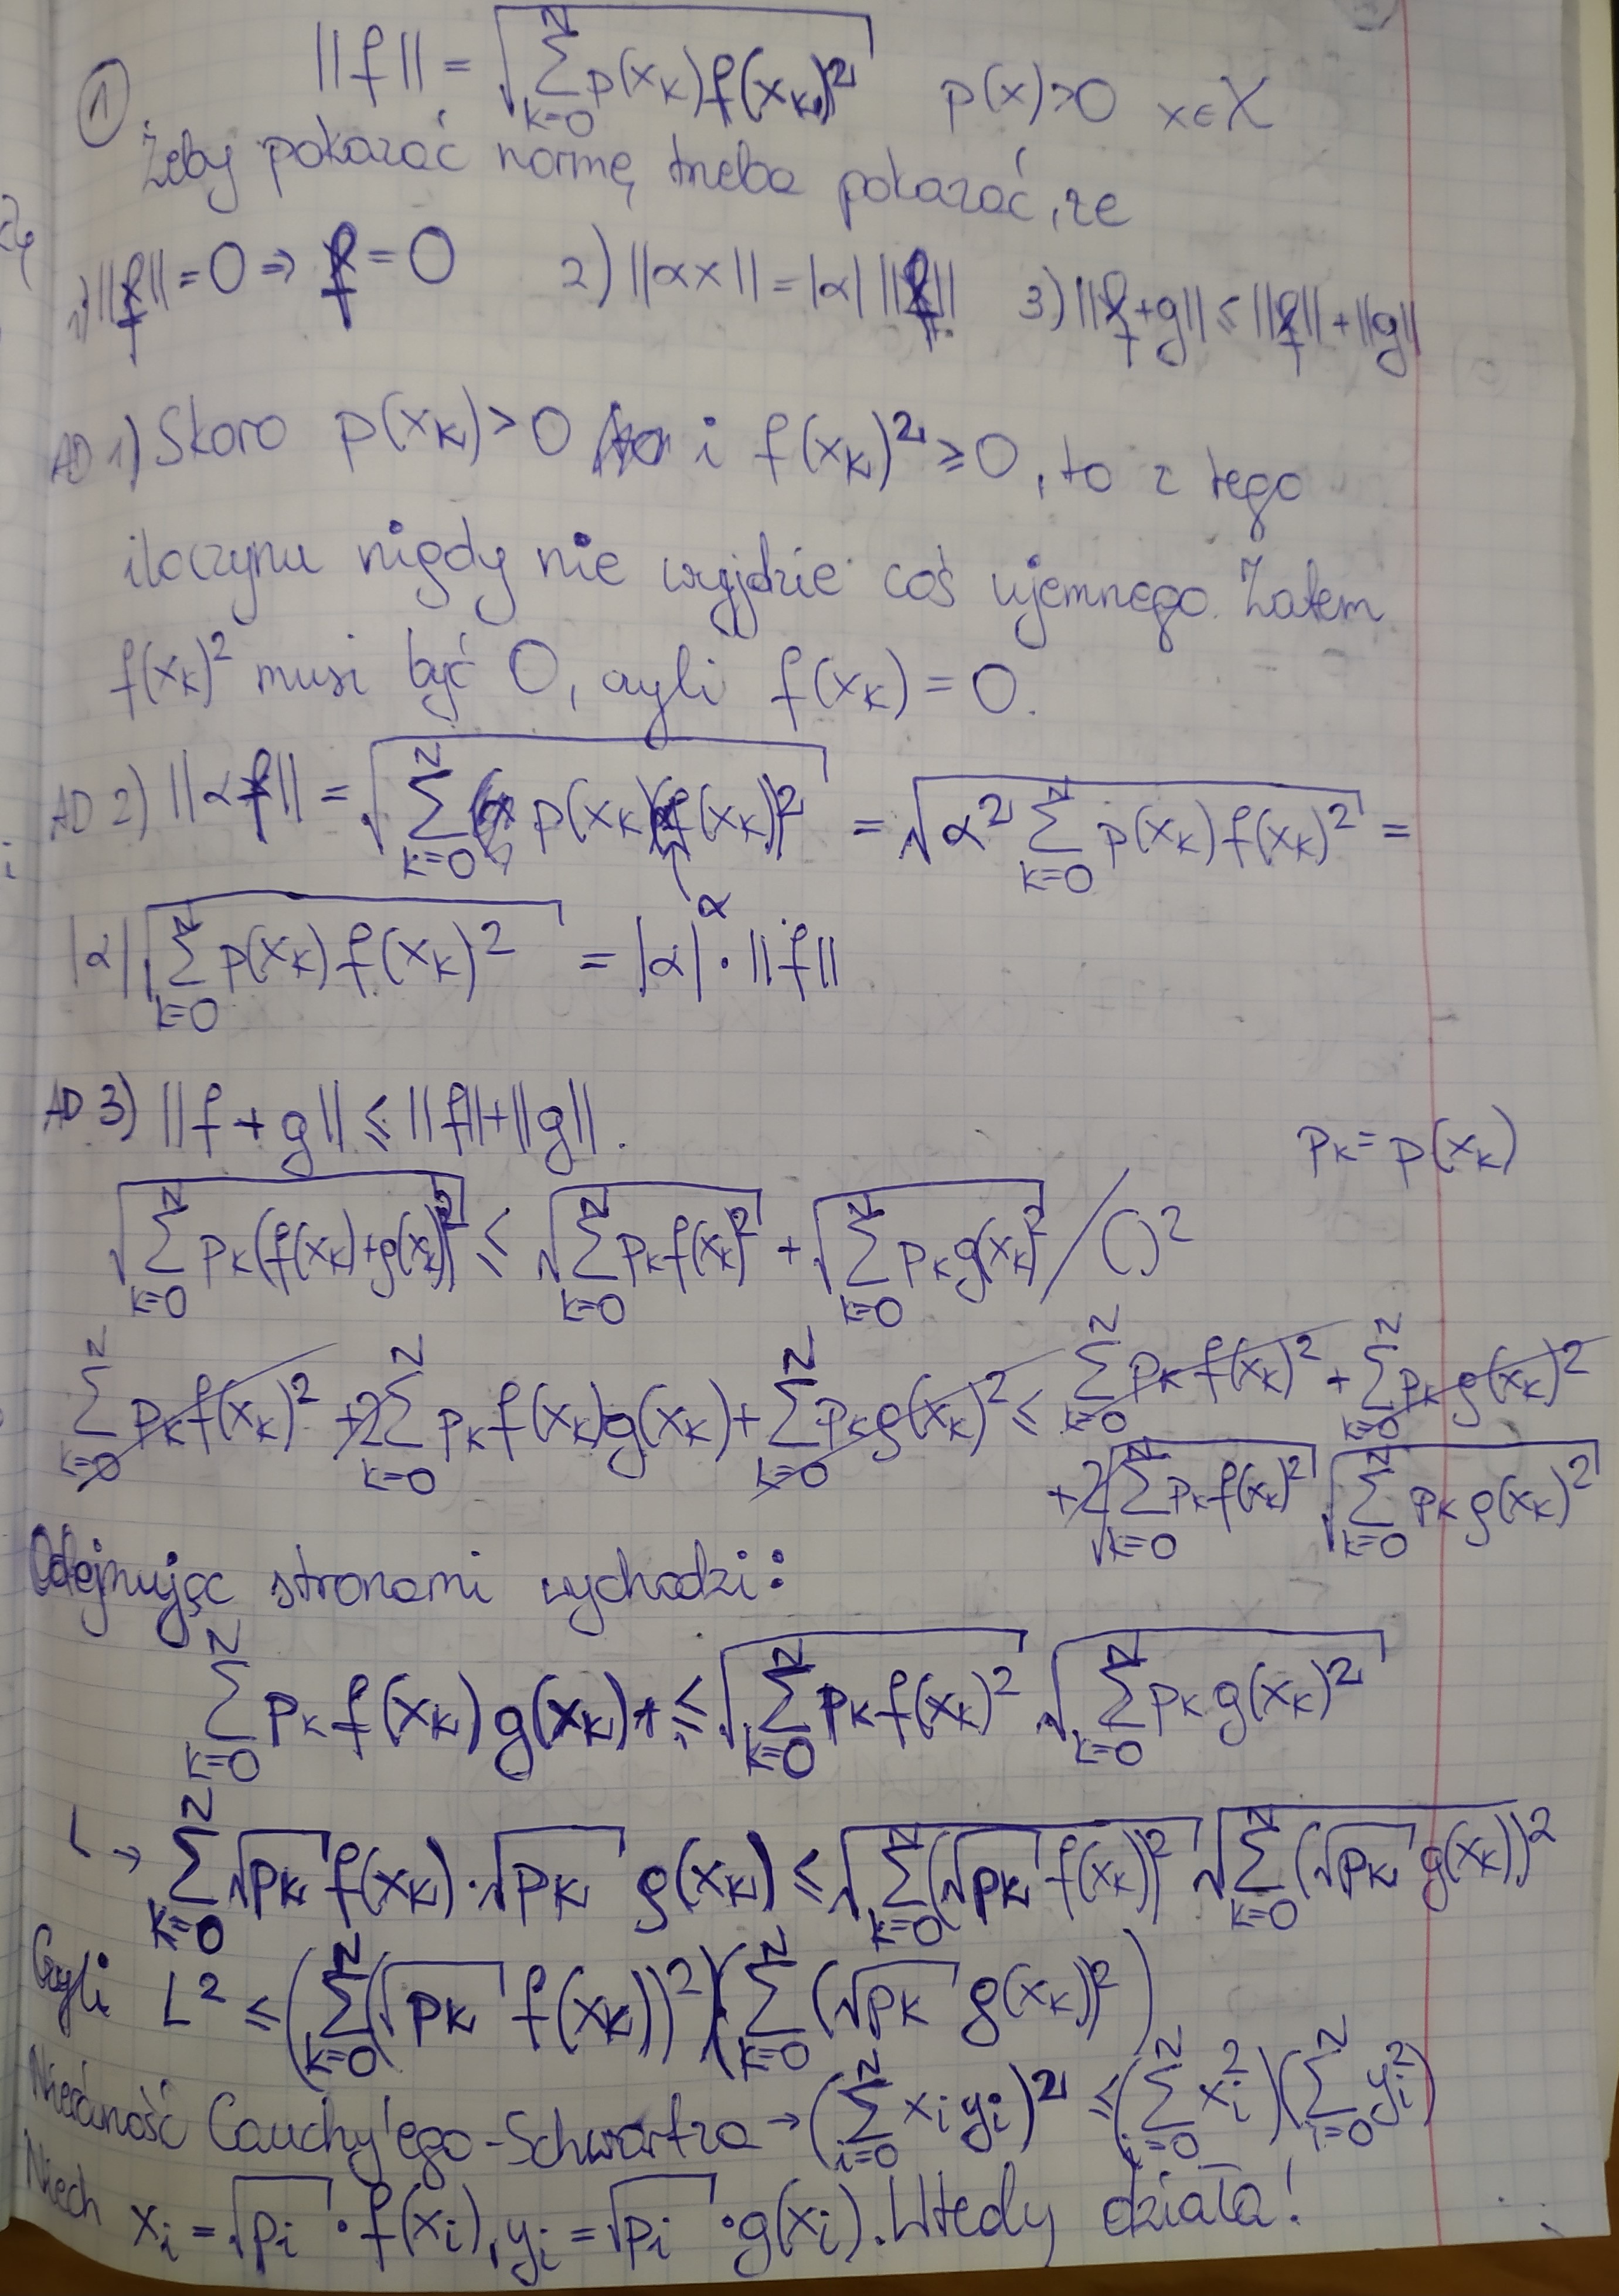 ① ||f|| = √(∑_{k=0}^{N} p(x_k) f(x_k)²) p(x)>0 x∈X
Żeby pokazać normę, trzeba pokazać, że
1) ||f|| = 0 ⇒ f = 0 2) ||αx|| = |α| ||f|| 3) ||f+g|| ≤ ||f|| + ||g||
AD 1) Skoro p(x_k) > 0 i f(x_k)² ≥ 0, to z tego
iloczynu nigdy nie wyjdzie coś ujemnego. Zatem
f(x_k)² musi być 0, czyli f(x_k) = 0.
AD 2) ||αf|| = √(∑_{k=0}^{N} p(x_k)(αf(x_k))²) = √(α² ∑_{k=0}^{N} p(x_k) f(x_k)²) =
α
|α| √(∑_{k=0}^{N} p(x_k) f(x_k)²) = |α| · ||f||
AD 3) ||f + g|| ≤ ||f|| + ||g||.
p_k = p(x_k)
√(∑_{k=0}^{N} p_k(f(x_k)+g(x_k))²) ≤ √(∑_{k=0}^{N} p_k f(x_k)²) + √(∑_{k=0}^{N} p_k g(x_k)²) / ()²
∑_{k=0}^{N} p_k f(x_k)² + 2∑_{k=0}^{N} p_k f(x_k)g(x_k) + ∑_{k=0}^{N} p_k g(x_k)² ≤ ∑_{k=0}^{N} p_k f(x_k)² + ∑_{k=0}^{N} p_k g(x_k)²
+ 2√(∑_{k=0}^{N} p_k f(x_k)²) √(∑_{k=0}^{N} p_k g(x_k)²)
Odejmując stronami wychodzi:
∑_{k=0}^{N} p_k f(x_k) g(x_k) ≤ √(∑_{k=0}^{N} p_k f(x_k)²) √(∑_{k=0}^{N} p_k g(x_k)²)
L → ∑_{k=0}^{N} √p_k f(x_k) · √p_k g(x_k) ≤ √(∑_{k=0}^{N} (√p_k f(x_k))²) √(∑_{k=0}^{N} (√p_k g(x_k))²)
Czyli L² ≤ (∑_{k=0}^{N} (√p_k f(x_k))²)(∑_{k=0}^{N} (√p_k g(x_k))²)
Nierówność Cauchy'ego-Schwartza → (∑_{i=0}^{N} x_i y_i)² ≤ (∑_{i=0}^{N} x_i²)(∑_{i=0}^{N} y_i²)
Niech x_i = √p_i · f(x_i), y_i = √p_i · g(x_i). Wtedy działa!